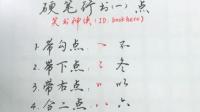 硬笔行书(一):点
笑书神侠(ID:bookhero)
1.带勾点 不
2.带下点 冬
3.带右点 以
4.合二点 六